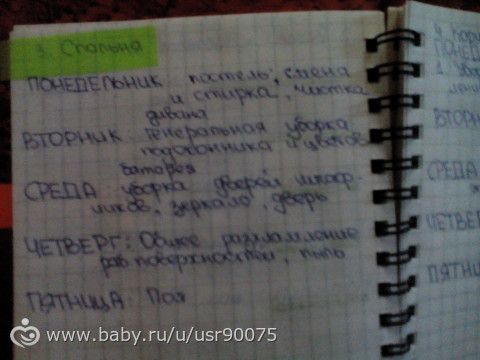 3. Спальня
ПОНЕДЕЛЬНИК: постель, смена
и стирка, чистка
дивана
ВТОРНИК: генеральная уборка
подоконника и цветов
батарея
СРЕДА: уборка дверей шкаф-
чиков, зеркало, дверь
ЧЕТВЕРГ: Общее расхламление
раб поверхностей, пыль
ПЯТНИЦА: Пол
4. 
ПОНЕД
1.
ВТОРН
СРЕДА
ЧЕТВЕ
ПЯТНИ
www.baby.ru/u/usr90075